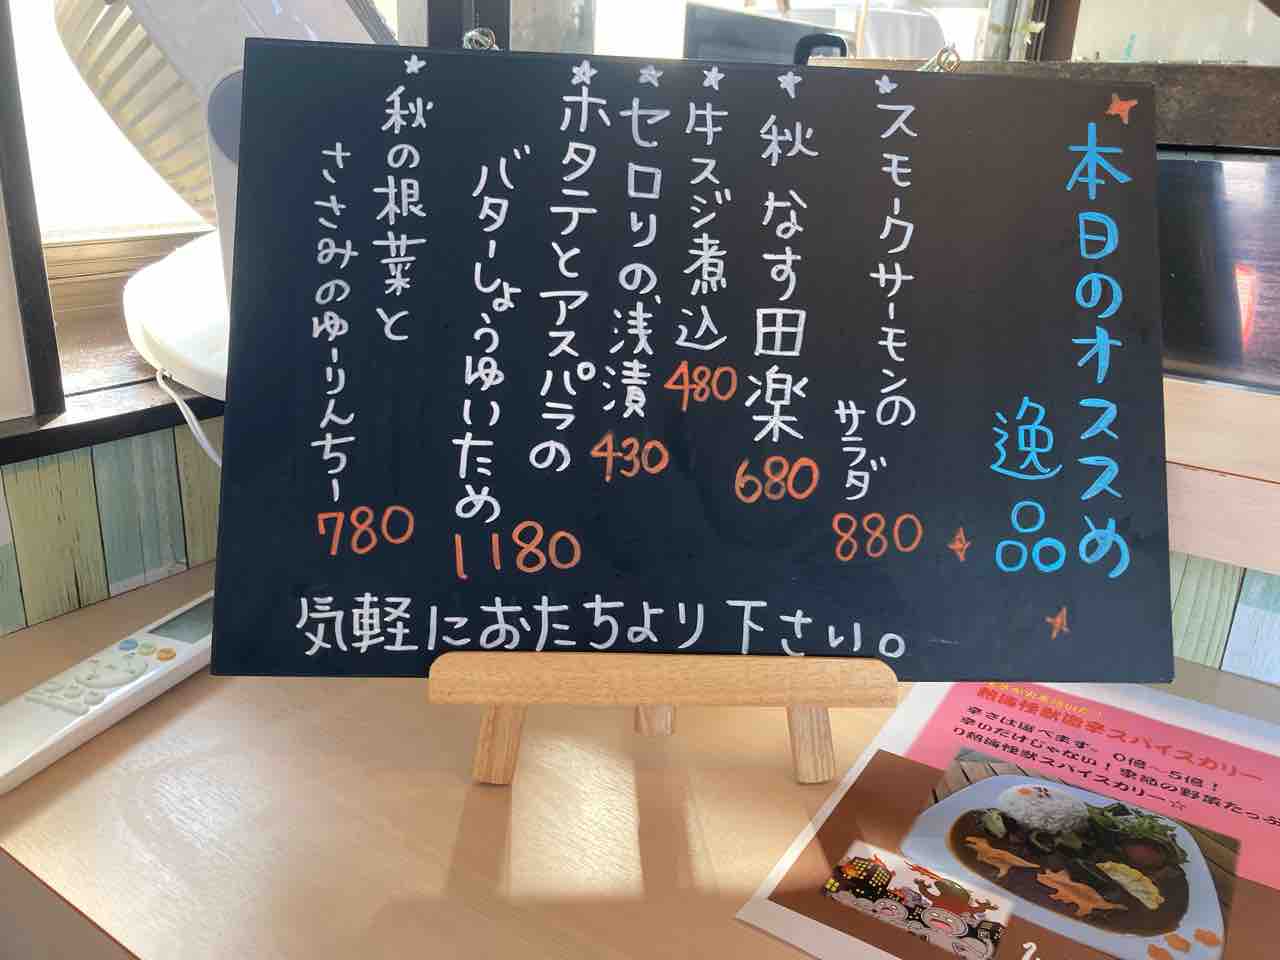 本日のオススめ
逸品
スモークサーモンの
サラダ
880
秋なす田楽
680
牛スジ煮込
480
セロリの浅漬
430
ホタテとアスパラの
バターしょうゆいため
1180
秋の根菜と
ささみのゆーりんちー
780
気軽におたちより下さい。
熱海怪獣盛辛スパイスカリー
辛さは選べます。0倍〜5倍！
辛いだけじゃない！季節の野菜たっぷ
り熱海怪獣スパイスカリー☆